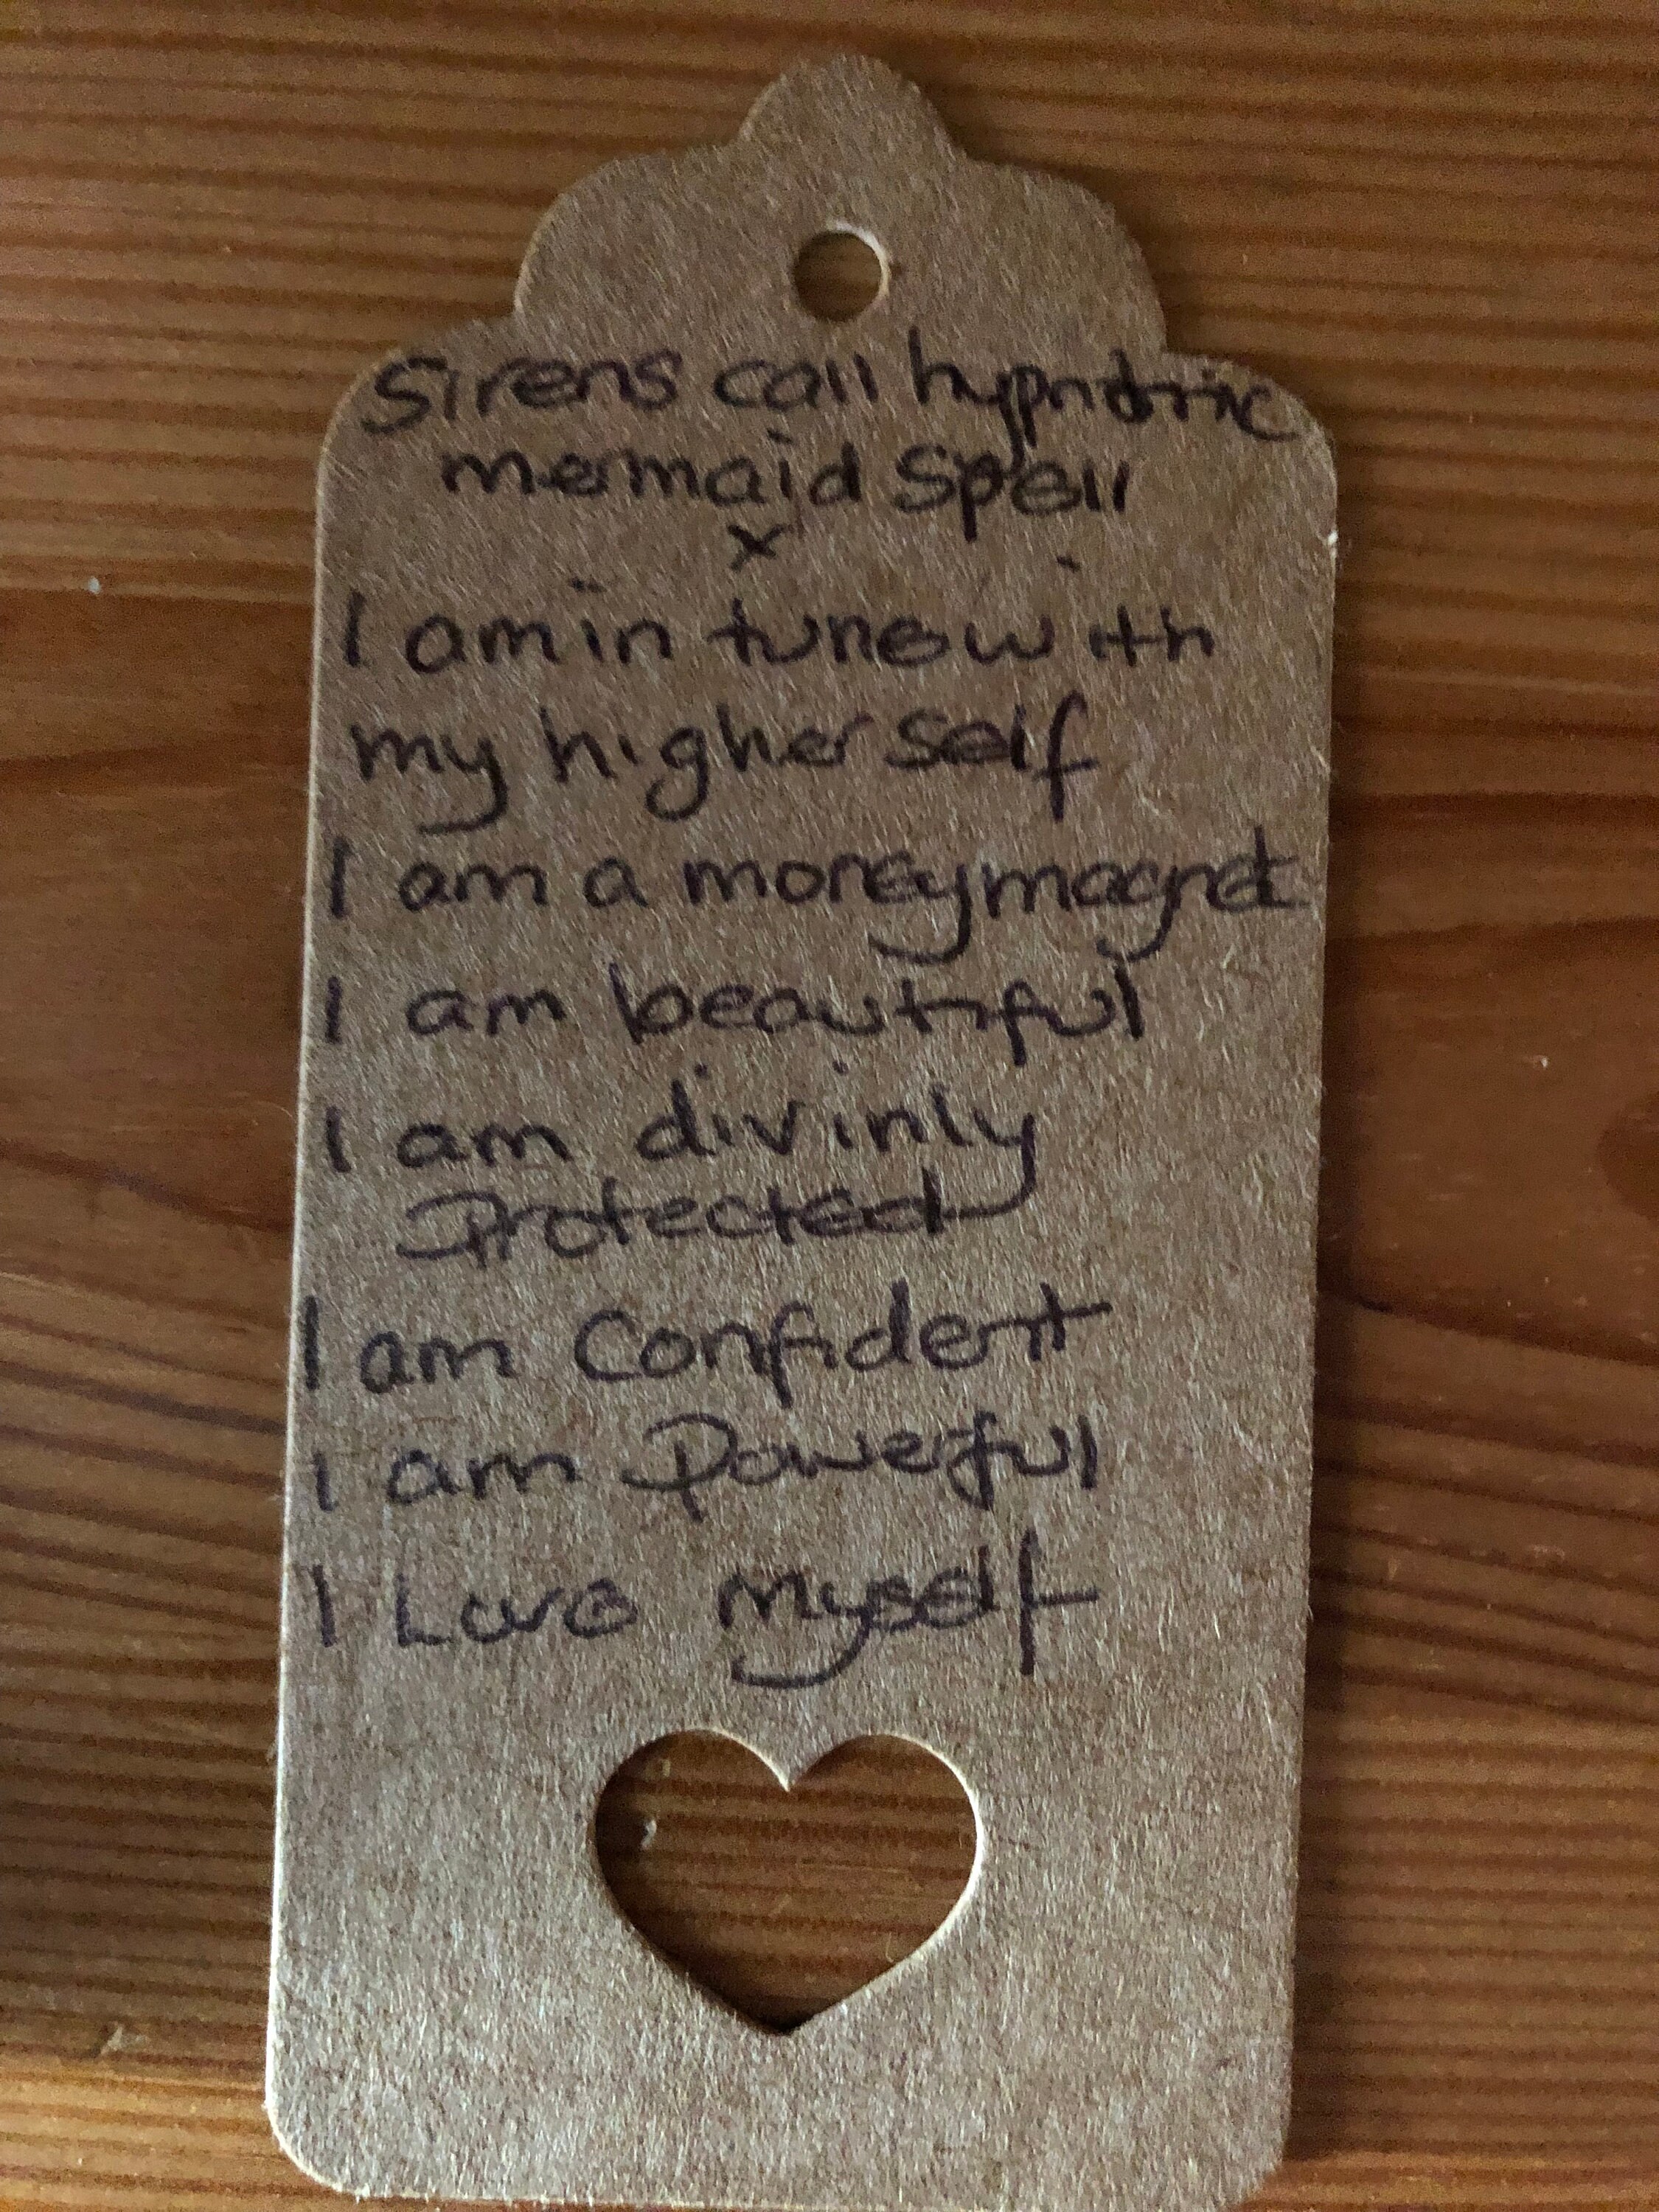 Sirens call hypnotic
mermaid Spell
x
I am in tune with
my higher self
I am a money magnet
I am beautiful
I am divinly
Protected
I am Confident
I am Powerful
I Love Myself